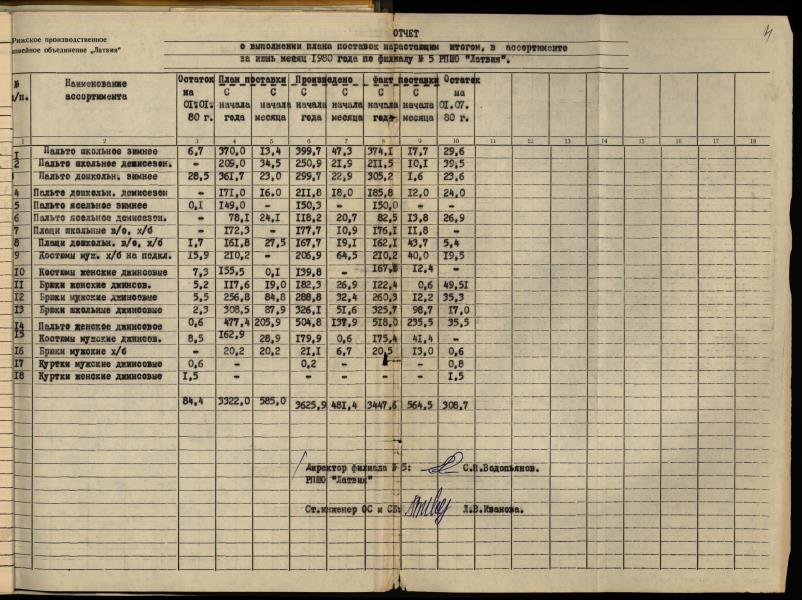 4
Рижское производственное
швейное объединение „Латвия"
ОТЧЕТ
о выполнении плана поставок нарастающим итогом, в ассортименте
за июнь месяц 1980 года по филиалу № 5 РПШО "Латвия".
№ п/п. Наименование ассортимента Остаток на 01.01. 80 г. План поставки С начала года С начала месяца Произведено С начала года С начала месяца Факт поставки С начала года С начала месяца Остаток на 01.07. 80 г.
1 2 3 4 5 6 7 8 9 10 11 12 13 14 15 16 17 18
1 Пальто школьное зимнее 6,7 370,0 13,4 399,7 47,3 374,1 17,7 29,6
2 Пальто школьное демисезон. - 209,0 34,5 250,9 21,9 211,5 10,1 39,5
Пальто дошкольн. зимнее 28,5 361,7 23,0 299,7 22,9 305,2 1,6 23,6
4 Пальто дошкольн. демисезон - 171,0 16.0 211,8 18,0 185,8 12,0 24,0
5 Пальто ясельное зимнее 0,1 149,0 - 150,3 - 150,0 - -
6 Пальто ясельное демисезон. - 78,1 24,1 118,2 20,7 82,5 13,8 26,9
7 Плащи школьные в/о, х/б - 172,3 - 177,7 10,9 176,1 11,8 -
8 Плащи дошкольн. в/о, х/б 1,7 161,8 27,5 167,7 19,1 162,1 43,7 5,4
9 Костюмы муж. х/б на подкл. 15,9 210,2 - 206,9 64,5 210,2 40,0 19,5
10 Костюмы женские джинсовые 7,3 155,5 0,1 139,8 - 12,4 -
11 Брюки женские джинсов. 5,2 117,6 19,0 182,3 26,9 122,4 0,6 49,51
12 Брюки мужские джинсовые 5,5 256,8 84,8 288,8 32,4 260,3 12,2 35,3
13 Брюки школьные джинсовые 2,3 308,5 87,9 326,1 51,6 325,7 98,7 17,0
14 Пальто женское джинсовое 0,6 477,4 205,9 504,8 137,9 518,0 235,5 35,5
15 Костюмы мужские джинсов. 8,5 162,9 28,9 179,9 0,6 175,4 41,4 -
16 Брюки мужские х/б - 20,2 20,2 21,1 6,7 20,5 13,0 0,6
17 Куртки мужские джинсовые 0,6 - - 0,2 - - - 0,8
18 Куртки женские джинсовые 1,5 - - - - - - 1,5
84,4 3322,0 585,0 3625,9 481,4 3447,6 564,5 308,7
Директор филиала № 5: С.П.Водопьянов.
РПШО "Латвия"
Ст.инженер ОС и СБ: Л.В.Иванова.